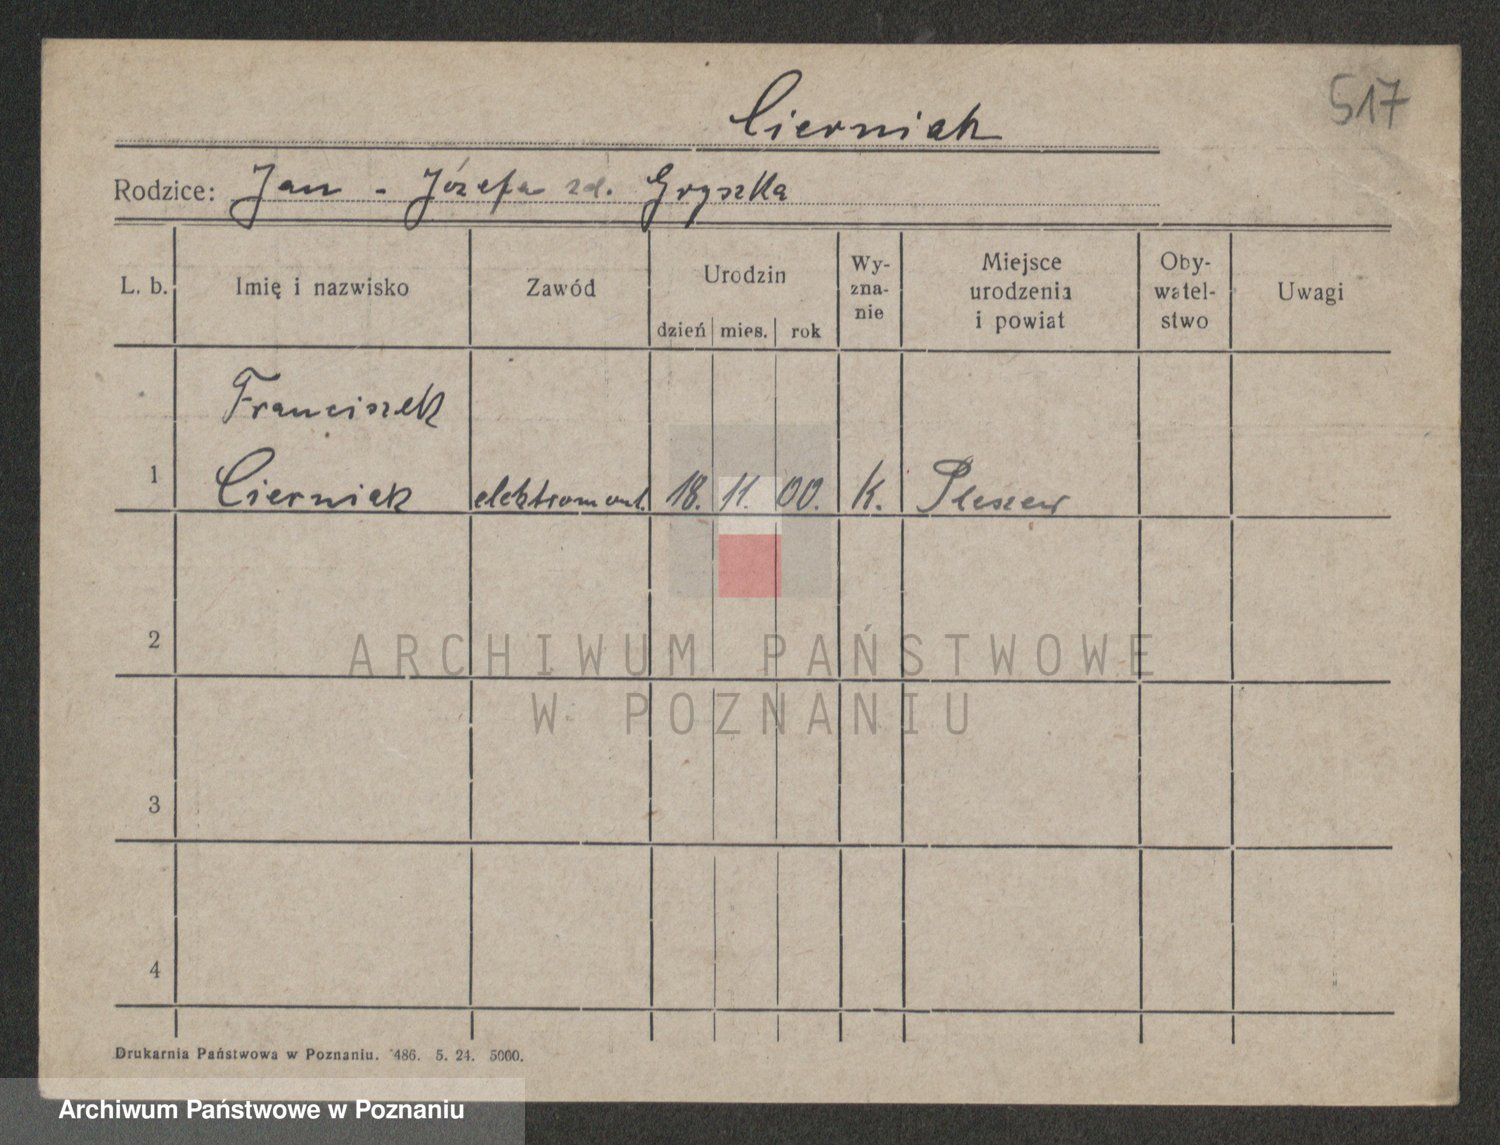 517
Cierniak
Rodzice: Jan - Józefa zd. Gryszka
L. b. Imię i nazwisko Zawód Urodzin dzień mies. rok Wy- zna- nie Miejsce urodzenia i powiat Oby- watel- stwo Uwagi
Franciszek
1 Cierniak elektromont. 18. 11. 00. K. Pleszew
2
ARCHIWUM PAŃSTWOWE
W POZNANIU
3
4
Drukarnia Państwowa w Poznaniu. 486. 5. 24. 5000.
Archiwum Państwowe w Poznaniu